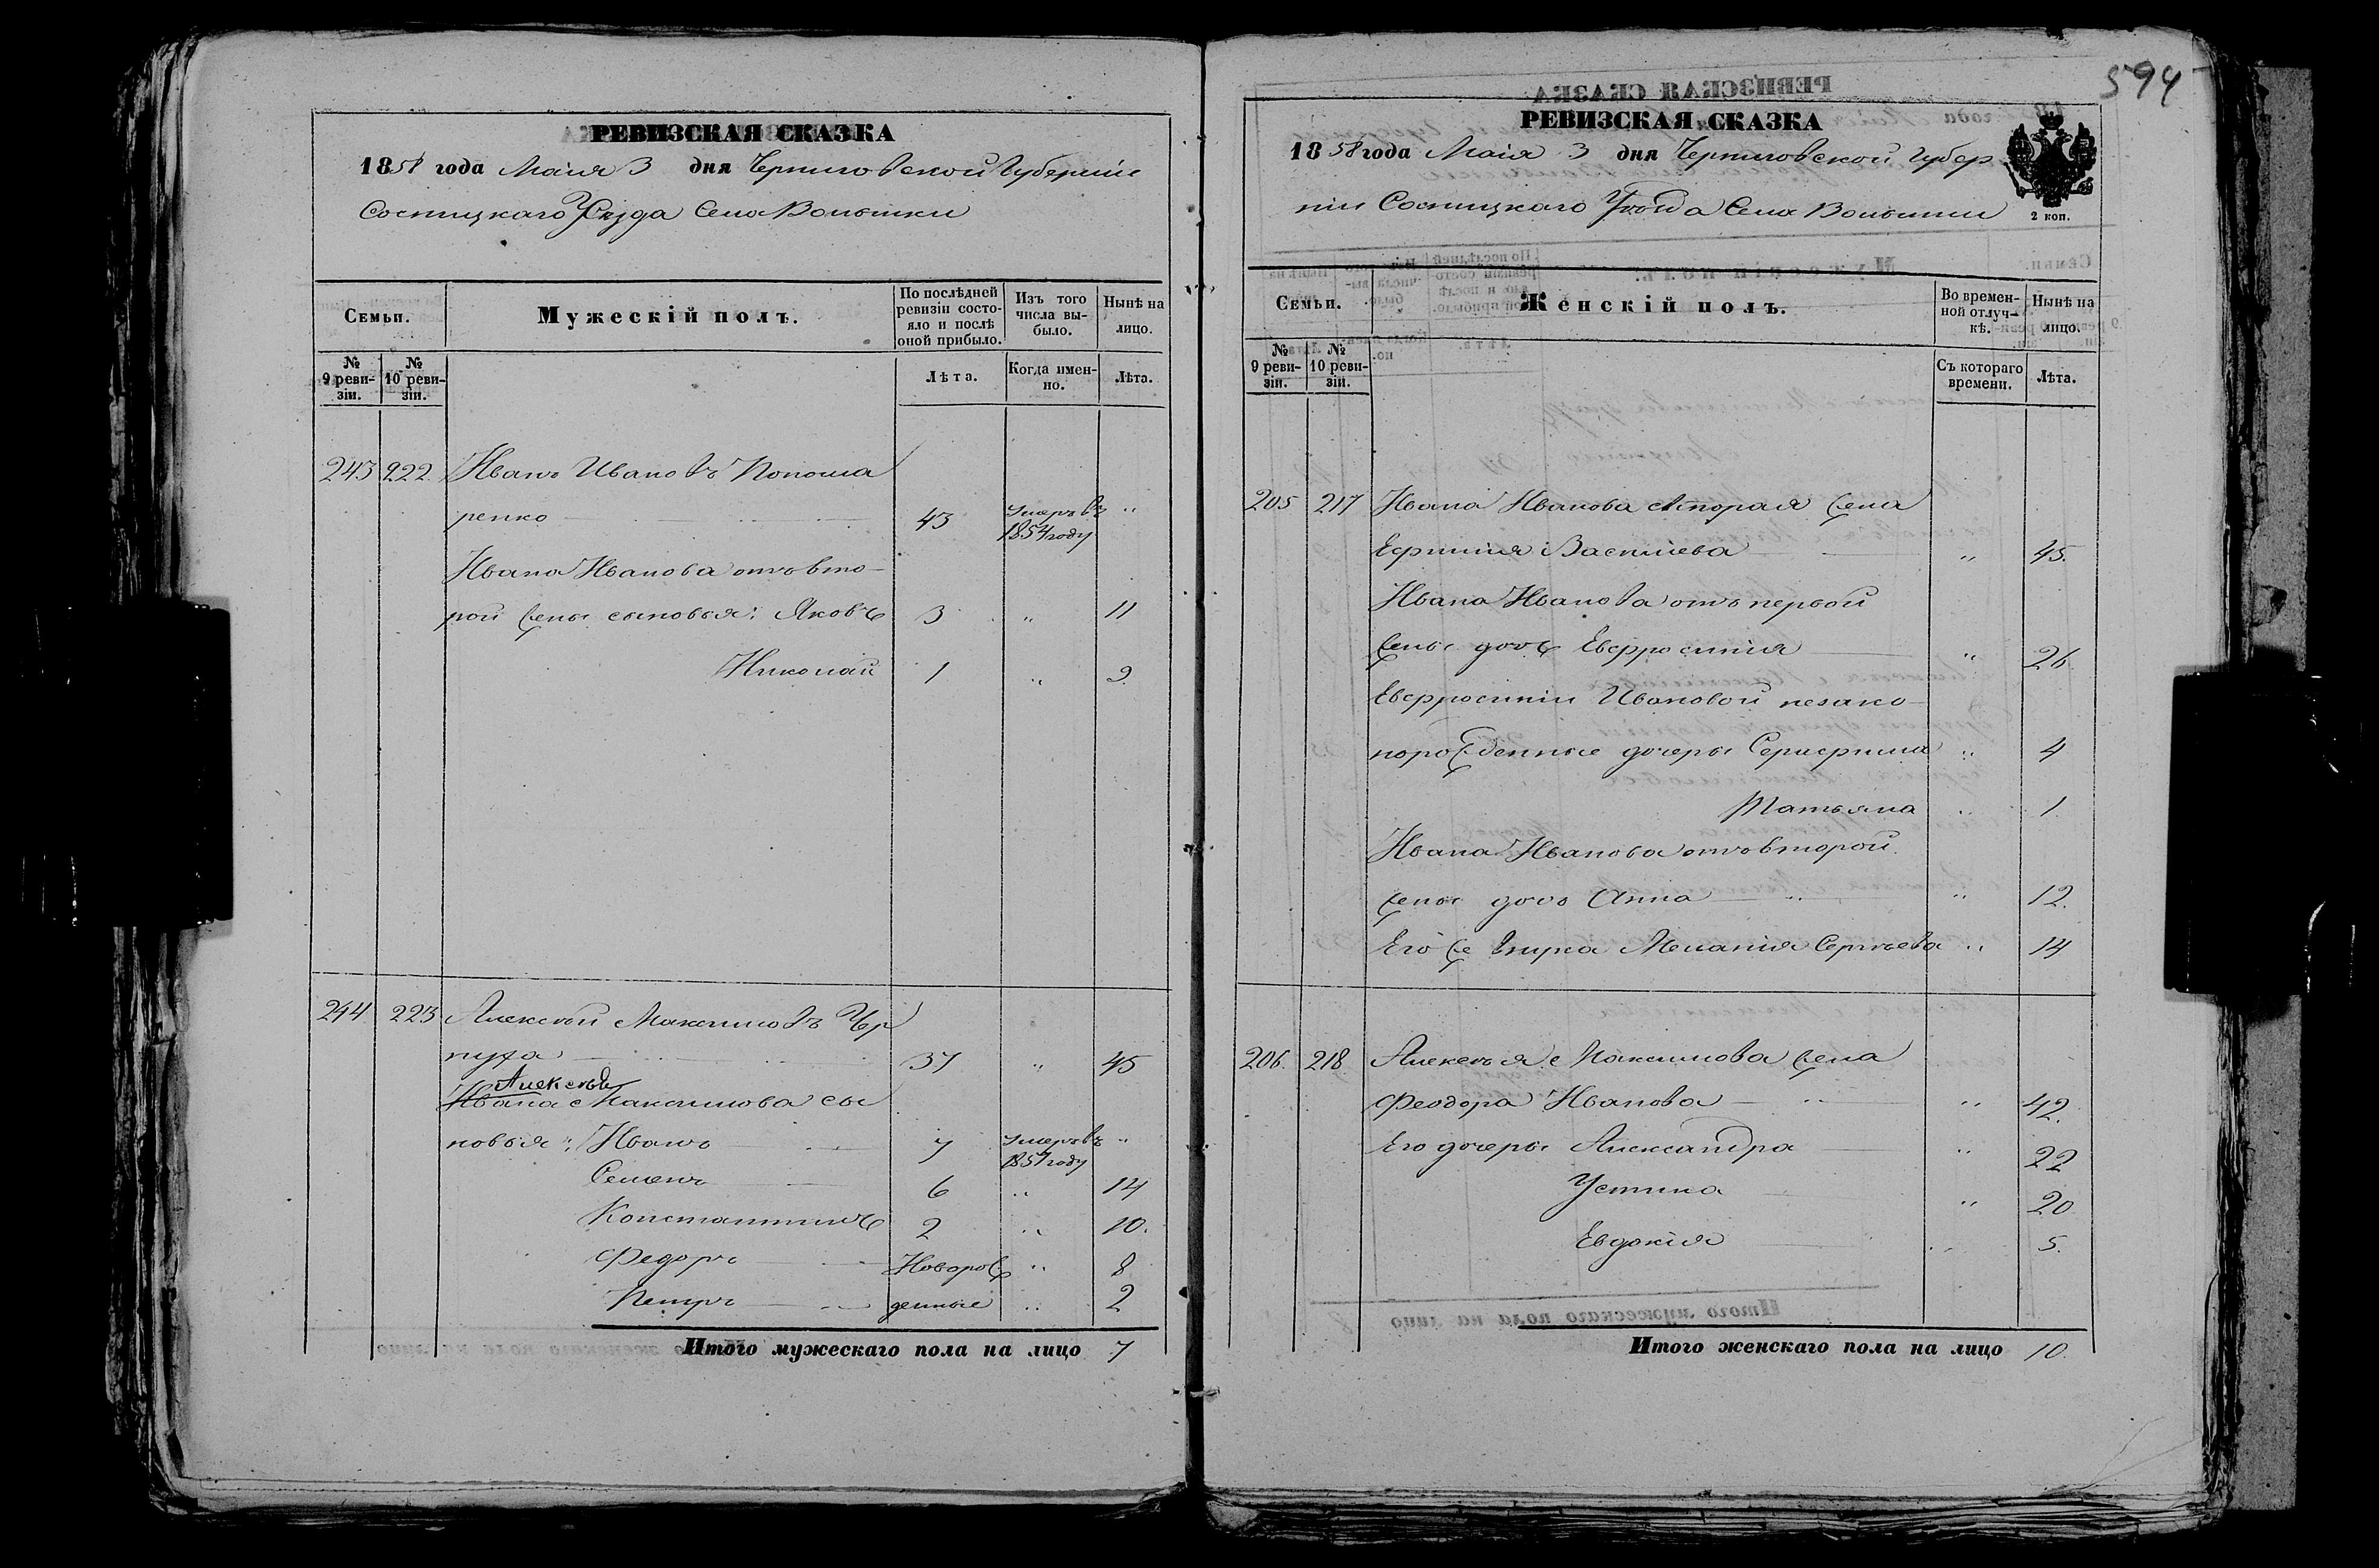 РЕВИЗСКАЯ СКАЗКА
1858 года Маія 3 дня Черниговской Губерніи
Сосницкаго Уезда Села Волынки
Семьи.
Мужескій полъ.
По послѣдней ревизіи состояло и послѣ оной прибыло.
Изъ того числа выбыло.
Нынѣ на лицо.
№ 9 ревизіи.
№ 10 ревизіи.
Лѣта.
Когда именно.
Лѣта.
243 222 Иванъ Ивановъ
ренко 43 умеръ въ 1854 году "
Ивана Иванова отъ вто-
рой жены сыновья: Яковъ 3 " 11
Николай 1 " 9.
244 223 Алексѣй Максимовъ Чер
нуха 37 " 45
Алексѣя
Ивана Максимова сы
новья: Иванъ 7 умеръ въ 1857 году "
Семенъ 6 " 14
Константинъ 2 " 10.
Федоръ Новорож " 8
Петръ денные " 2
Итого мужескаго пола на лицо 7
594
РЕВИЗСКАЯ СКАЗКА
1858 года Маія 3 дня Черниговской Губер
ніи Сосницкаго Уѣзда Села Волынки
2 коп.
Семьи.
Женскій полъ.
Во временной отлучкѣ.
Нынѣ на лицо.
№ 9 ревизіи.
№ 10 ревизіи.
Съ котораго времени.
Лѣта.
205 217 Ивана Иванова вторая жена
Ефимія Васильева " 45.
Ивана Иванова отъ первой
жены дочь Евфросинія " 26
Евфросиніи Ивановой незако-
норожденные дочеры " 4
Татьяна " 1.
Ивана Иванова отъ второй
жены дочь Анна " 12.
Его же внука Меланія Сергѣева " 14
206. 218. Алексѣя Максимова жена
Феодора Иванова " 42.
Его дочеры Александра " 22
Устина " 20
Евдокія " 5.
Итого женскаго пола на лицо 10.